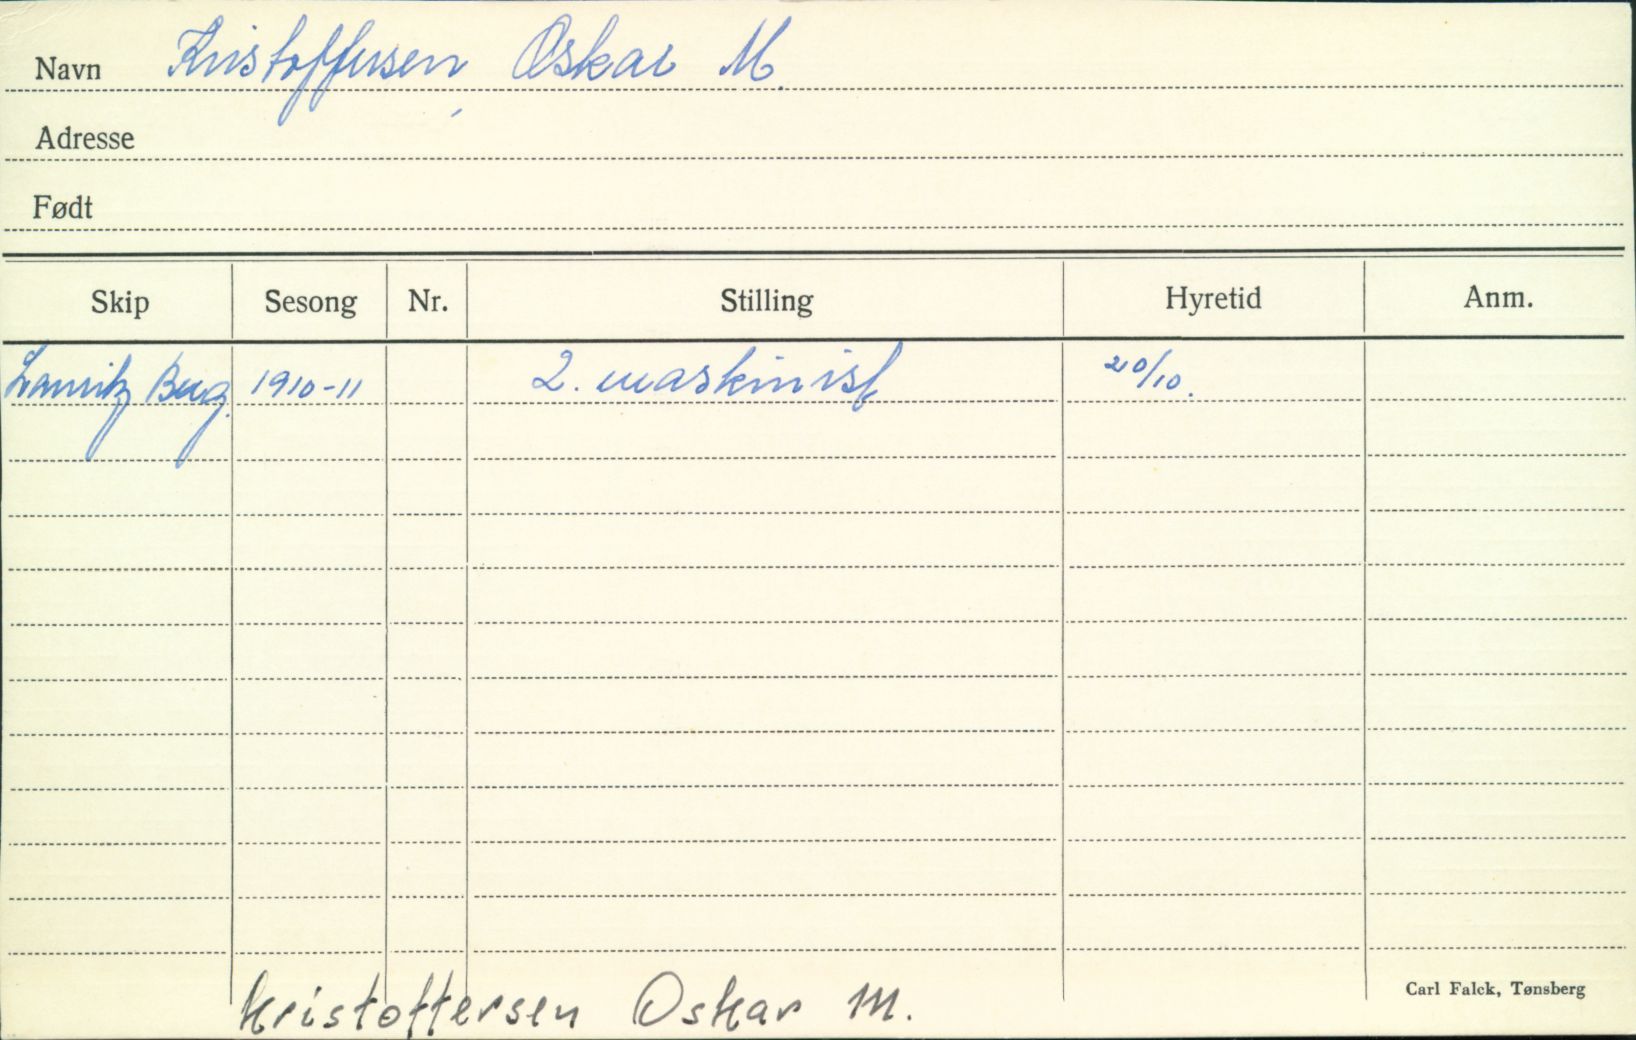 Navn Kristoffersen, Oskar M.
Adresse
Født
Skip Sesong Nr. Stilling Hyretid Anm.
Lauritz Berg. 1910-11 2. maskinist 20/10.
Carl Falck, Tønsberg
Kristoffersen Oskar M.